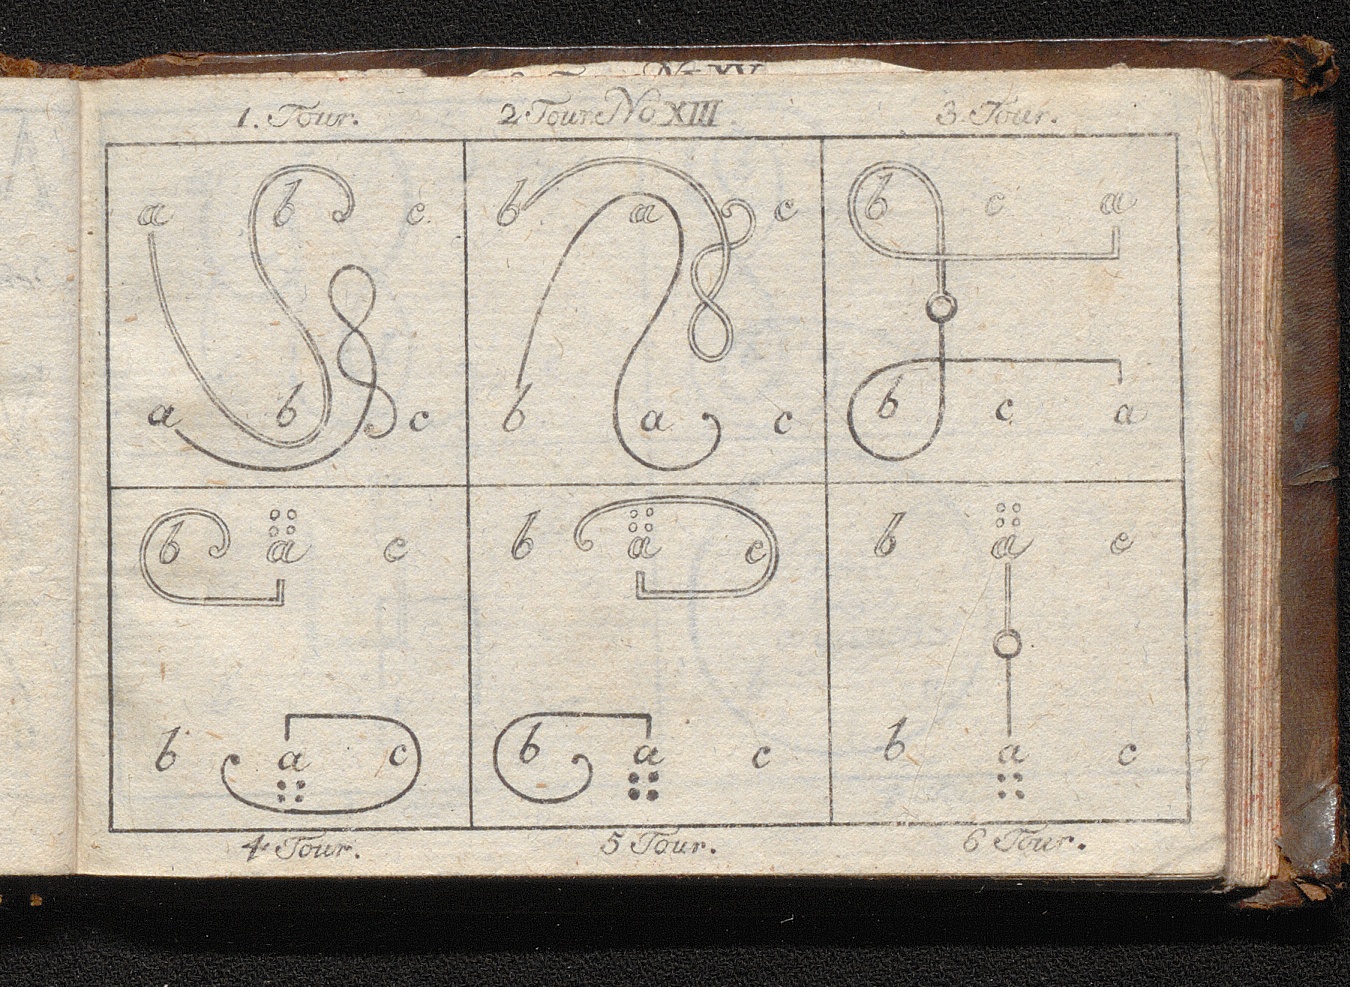 No XV
1. Tour. 2 Tour. No XIII 3. Tour.
a b c b a c b c a
a b c b a c b c a
b a c b a c b a c
b a c b a c b a c
4 Tour. 5 Tour. 6 Tour.